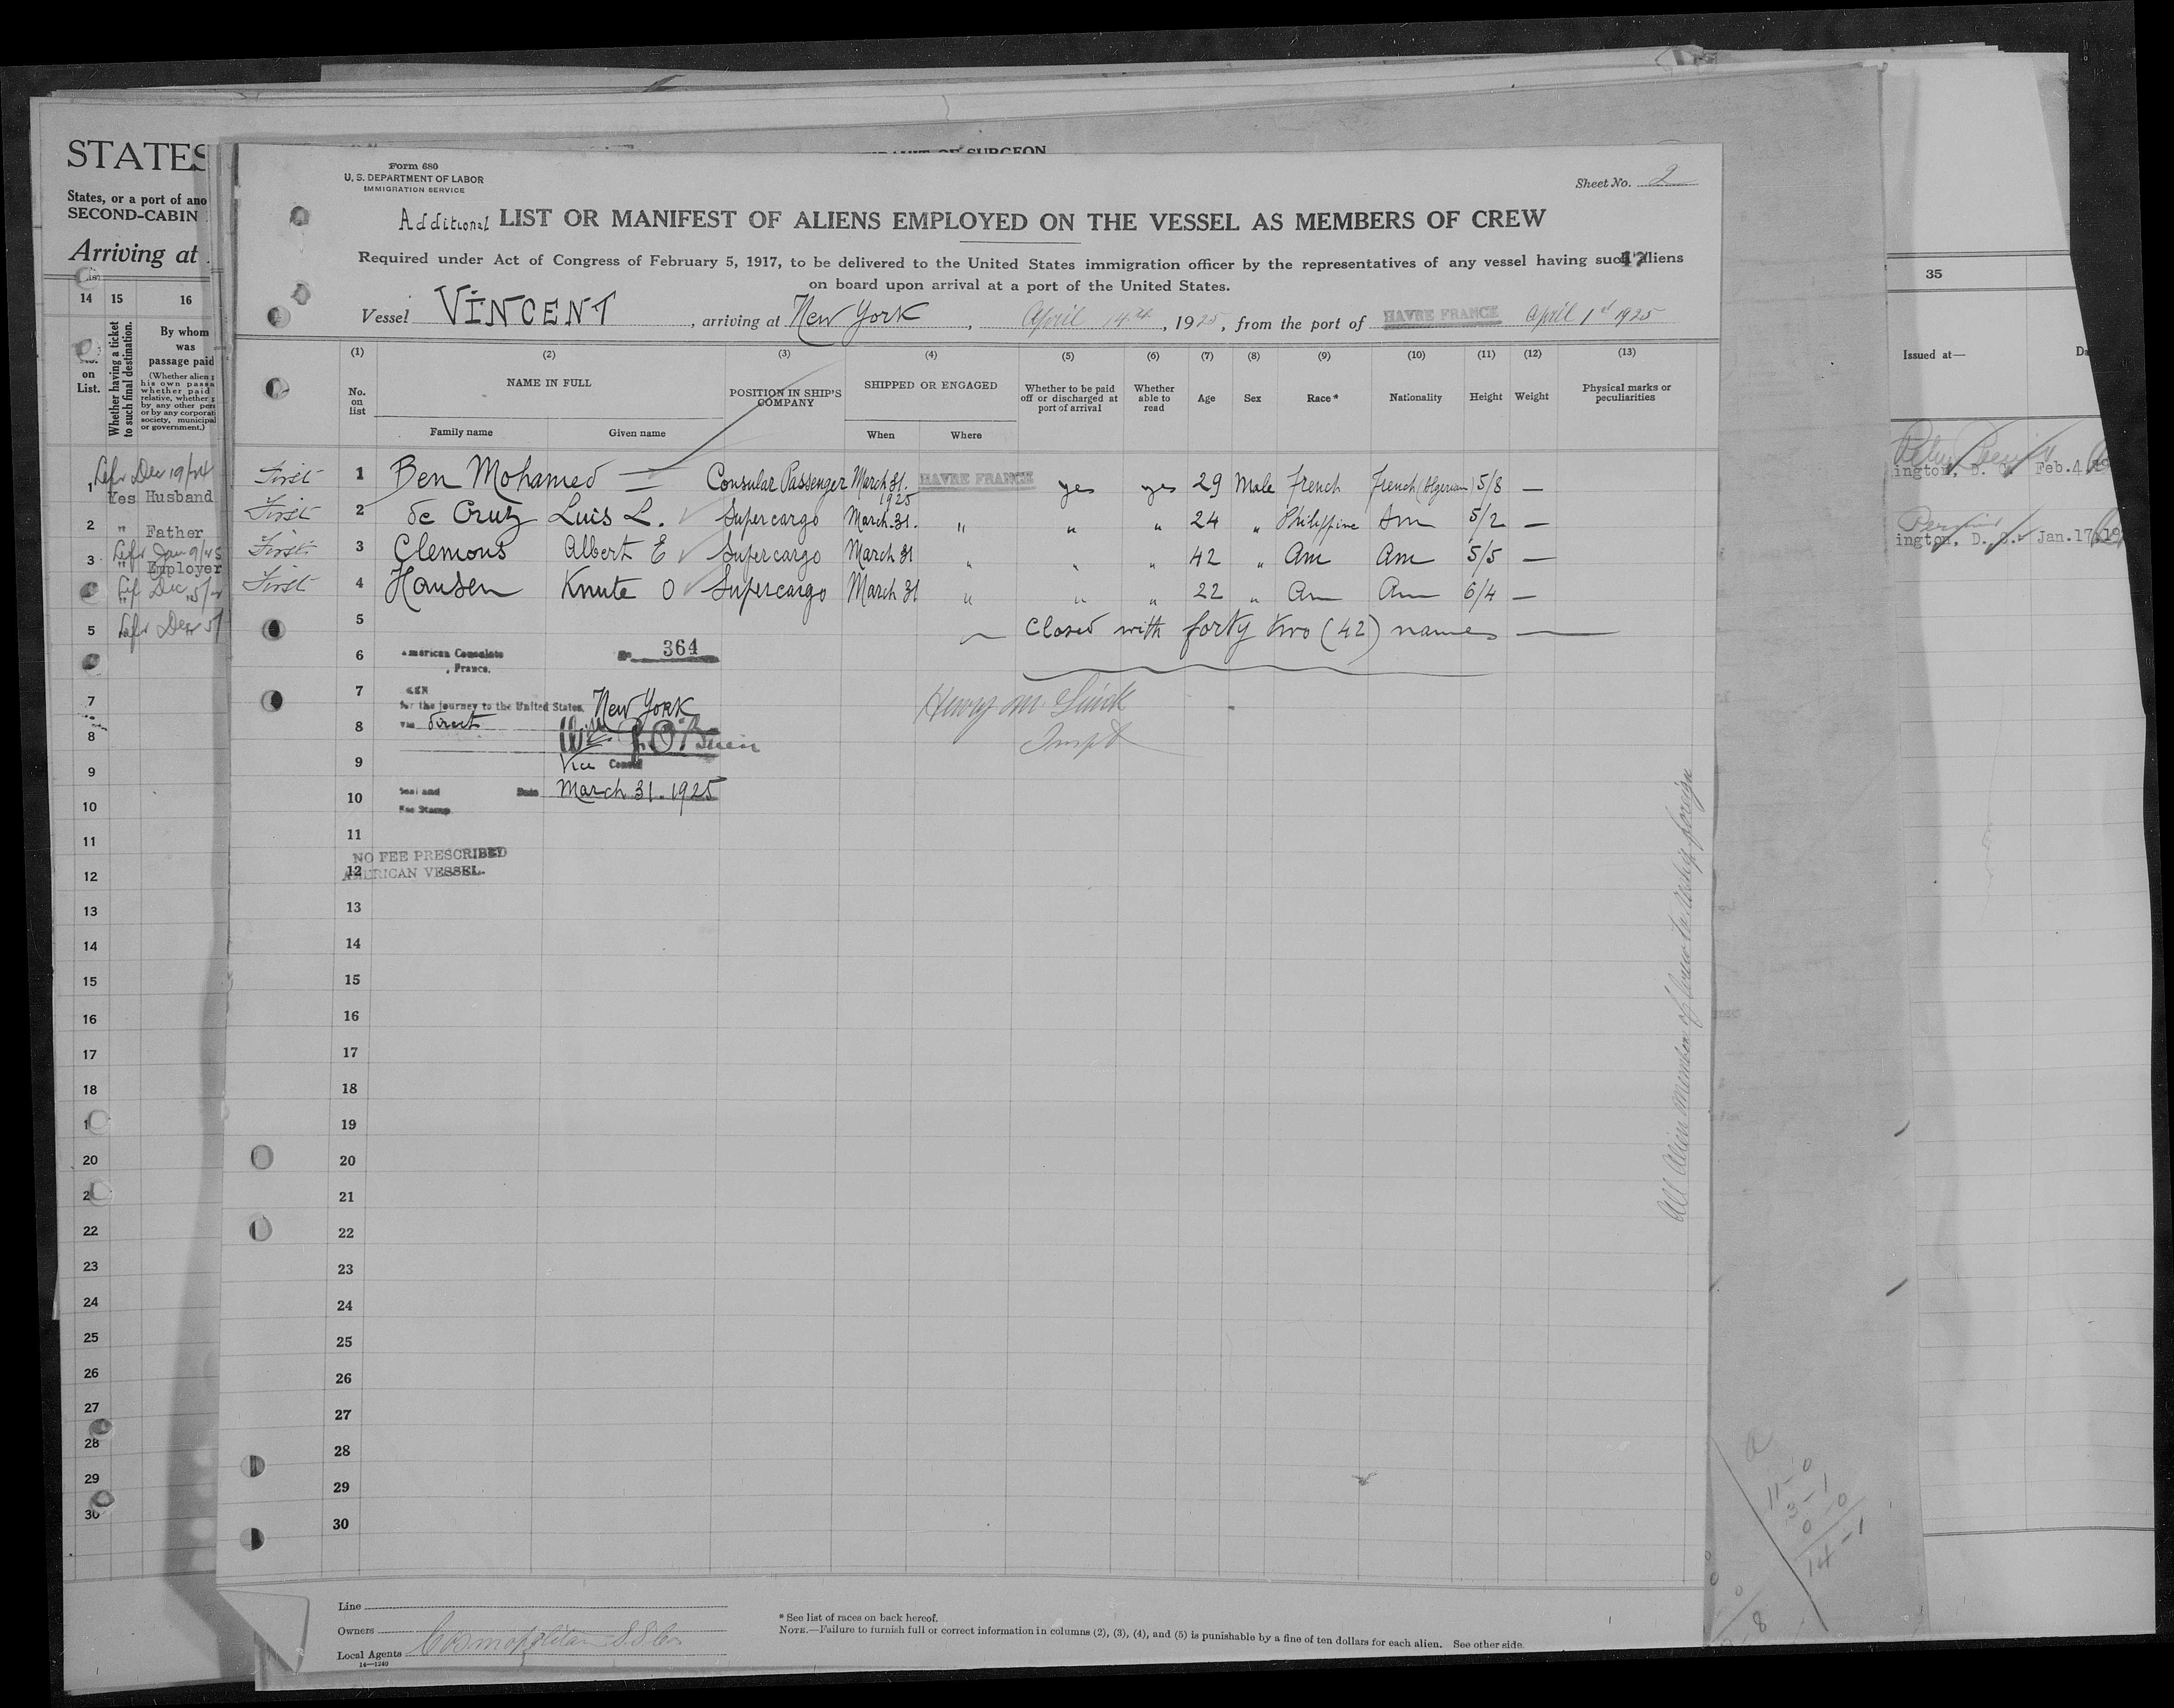 STATES
States, or a port of ano
SECOND-CABIN
Arriving at
14 15 16
on
List.
Whether having a ticket
to such final destination.
By whom
was
passage paid
(Whether alien
his own passa
whether paid
relative, whether
by any other per
or by any corporat
society, municipal
or government.)
Dec 19/24
1 Yes Husband
2 " Father
Jan 9/25
3 " Employer
5
7
8
9
10
11
12
13
14
15
16
17
18
20
22
23
24
25
26
27
28
29
30
OF SURGEON
Form 680
U. S. DEPARTMENT OF LABOR
IMMIGRATION SERVICE
Sheet No. 2
Additional LIST OR MANIFEST OF ALIENS EMPLOYED ON THE VESSEL AS MEMBERS OF CREW
Required under Act of Congress of February 5, 1917, to be delivered to the United States immigration officer by the representatives of any vessel having such aliens
on board upon arrival at a port of the United States.
17
Vessel VINCENT, arriving at New York, April 14th, 1925, from the port of HAVRE FRANCE April 1st 1925
(1) (2) (3) (4) (5) (6) (7) (8) (9) (10) (11) (12) (13)
No.
on
list
NAME IN FULL
Family name Given name
POSITION IN SHIP'S
COMPANY
SHIPPED OR ENGAGED
When Where
Whether to be paid
off or discharged at
port of arrival
Whether
able to
read
Age Sex Race* Nationality Height Weight
Physical marks or
peculiarities
First 1 Ben Mohamed — Consular Passenger March 31. 1925 HAVRE FRANCE yes yes 29 Male French French (Algerian) 5/8 —
First 2 de Cruz Luis L. Supercargo March. 31. " " " 24 " Philippine Am 5/2 —
First 3 Clemons Albert E Supercargo March 31 " " " 42 " Am Am 5/5 —
First 4 Hansen Knute O Supercargo March 31 " " " 22 " Am Am 6/4 —
5 — Closed with forty two (42) names —
6 American Consulate No 364
, France.
7 SEEN
for the journey to the United States, New York
8 via direct
9 Vice Consul
10 Seal and Date March 31. 1925
Fee Stamp
11
NO FEE PRESCRIBED
12
AMERICAN VESSEL.
13
14
15
16
17
18
19
20
21
22
23
24
25
26
27
28
29
30
Inspt
Line
Owners
Local Agents Cosmopolitan S.S. Co
14—1240
* See list of races on back hereof.
NOTE.—Failure to furnish full or correct information in columns (2), (3), (4), and (5) is punishable by a fine of ten dollars for each alien. See other side.
35
Issued at—
ington, D. C. Feb. 4
ington, D. C. Jan. 17
11 - 0
3 - 1
0 0
14 - 1
8